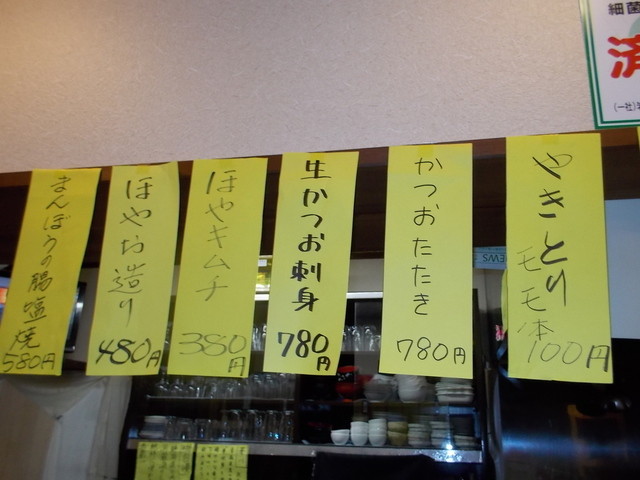 やきとり
モモ1本
100円
かつおたたき
780円
生かつお刺身
780円
ほやキムチ
380円
ほやお造り
480円
まんぼうの腸塩焼
580円
細菌
済
NEWS